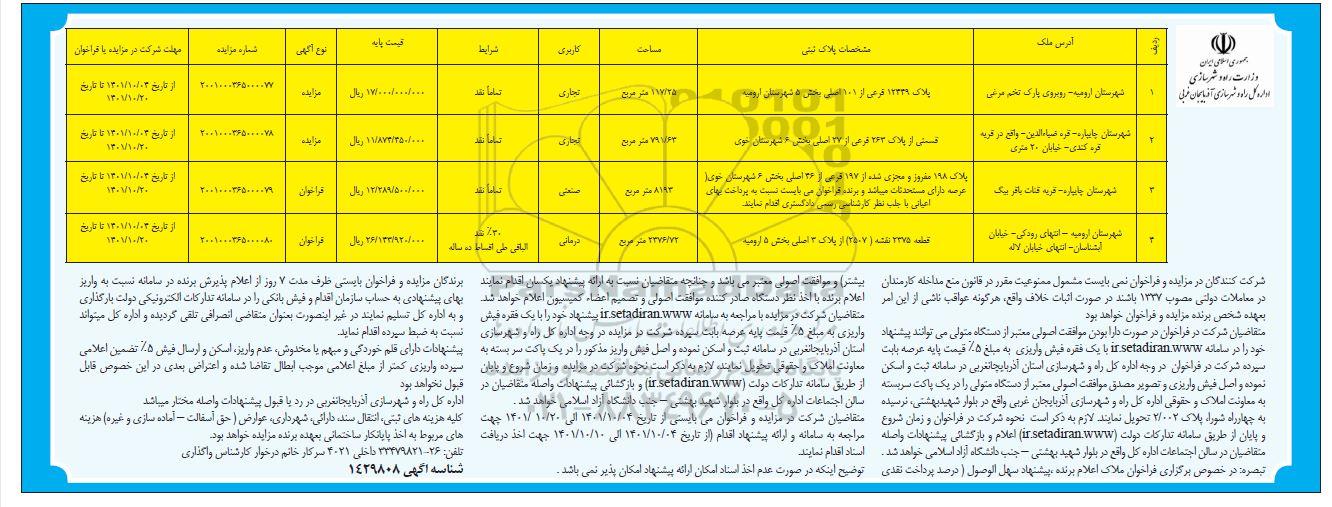 جمهوری اسلامی ایران
وزارت راه و شهرسازی
اداره کل راه و شهرسازی آذربایجان غربی
ردیف آدرس ملک مشخصات پلاک ثبتی مساحت کاربری شرایط قیمت پایه نوع آگهی شماره مزایده مهلت شرکت در مزایده یا فراخوان
۱ شهرستان ارومیه- روبروی پارک تخم مرغی پلاک ۱۲۴۴۹ فرعی از ۱۰۱ اصلی بخش ۵ شهرستان ارومیه ۱۱۷/۲۵ متر مربع تجاری تماماً نقد ۱۷/۰۰۰/۰۰۰/۰۰۰ ریال مزایده ۲۰۰۱۰۰۰۳۶۵۰۰۰۰۷۷ از تاریخ ۱۴۰۱/۱۰/۰۴ تا تاریخ
۱۴۰۱/۱۰/۲۰
۲ شهرستان چایپاره- قره ضیاءالدین- واقع در قریه
قره کندی- خیابان ۲۰ متری قسمتی از پلاک ۲۶۳ فرعی از ۳۷ اصلی بخش ۶ شهرستان خوی ۷۹۱/۶۳ متر مربع تجاری تماماً نقد ۱۱/۸۷۴/۴۵۰/۰۰۰ ریال مزایده ۲۰۰۱۰۰۰۳۶۵۰۰۰۰۷۸ از تاریخ ۱۴۰۱/۱۰/۰۴ تا تاریخ
۱۴۰۱/۱۰/۲۰
۳ شهرستان چایپاره- قریه قنات باقر بیک پلاک ۱۹۸ مفروز و مجزی شده از ۱۹۷ فرعی از ۴۶ اصلی بخش ۶ شهرستان خوی(
عرصه دارای مستحدثات میباشد و برنده فراخوان می بایست نسبت به پرداخت بهای
اعیانی با جلب نظر کارشناسی رسمی دادگستری اقدام نمایند. ۸۱۹۳ متر مربع صنعتی تماماً نقد ۱۲/۲۸۹/۵۰۰/۰۰۰ ریال فراخوان ۲۰۰۱۰۰۰۳۶۵۰۰۰۰۷۹ از تاریخ ۱۴۰۱/۱۰/۰۴ تا تاریخ
۱۴۰۱/۱۰/۲۰
۴ شهرستان ارومیه – انتهای رودکی- خیابان
آبشناسان- انتهای خیابان لاله قطعه ۲۳۷۵ نقشه ( ۲۵۰۷) از پلاک ۳ اصلی بخش ۵ ارومیه ۲۳۷۶/۷۲ متر مربع درمانی ۳۰٪ نقد
الباقی طی اقساط ده ساله ۲۶/۱۴۳/۹۲۰/۰۰۰ ریال فراخوان ۲۰۰۱۰۰۰۳۶۵۰۰۰۰۸۰ از تاریخ ۱۴۰۱/۱۰/۰۴ تا تاریخ
۱۴۰۱/۱۰/۲۰
شرکت کنندگان در مزایده و فراخوان نمی بایست مشمول ممنوعیت مقرر در قانون منع مداخله کارمندان
در معاملات دولتی مصوب ۱۳۳۷ باشند در صورت اثبات خلاف واقع، هرگونه عواقب ناشی از این امر
بعهده شخص برنده مزایده و فراخوان خواهد بود
متقاضیان شرکت در فراخوان در صورت دارا بودن موافقت اصولی معتبر از دستگاه متولی می توانند پیشنهاد
خود را در سامانه ir.setadiran.www با یک فقره فیش واریزی به مبلغ ۵٪ قیمت پایه عرصه بابت
سپرده شرکت در فراخوان در وجه اداره کل راه و شهرسازی استان آذربایجانغربی در سامانه ثبت و اسکن
نموده و اصل فیش واریزی و تصویر مصدق موافقت اصولی معتبر از دستگاه متولی را در یک پاکت سربسته
به معاونت املاک و حقوقی اداره کل راه و شهرسازی آذربایجان غربی واقع در بلوار شهیدبهشتی، نرسیده
به چهارراه شورا، پلاک ۲/۰۰۲ تحویل نمایند. لازم به ذکر است نحوه شرکت در فراخوان و زمان شروع
و پایان از طریق سامانه تدارکات دولت (ir.setadiran.www) اعلام و بازگشائی پیشنهادات واصله
متقاضیان در سالن اجتماعات اداره کل واقع در بلوار شهید بهشتی – جنب دانشگاه آزاد اسلامی خواهد شد .
تبصره: در خصوص برگزاری فراخوان ملاک اعلام برنده ،پیشنهاد سهل الوصول ( درصد پرداخت نقدی
بیشتر) و موافقت اصولی معتبر می باشد و چنانچه متقاضیان نسبت به ارائه پیشنهاد یکسان اقدام نمایند
اعلام برنده با اخذ نظر دستگاه صادر کننده موافقت اصولی و تصمیم اعضاء کمیسیون اعلام خواهد شد.
متقاضیان شرکت در مزایده با مراجعه به سامانه ir.setadiran.www پیشنهاد خود را با یک فقره فیش
واریزی به مبلغ ۵٪ قیمت پایه عرصه بابت سپرده شرکت در مزایده در وجه اداره کل راه و شهرسازی
استان آذربایجانغربی در سامانه ثبت و اسکن نموده و اصل فیش واریز مذکور را در یک پاکت سر بسته به
معاونت املاک و حقوقی تحویل نمایند، لازم به ذکر است نحوه شرکت در مزایده و زمان شروع و پایان
از طریق سامانه تدارکات دولت (ir.setadiran.www) و بازگشائی پیشنهادات واصله متقاضیان در
سالن اجتماعات اداره کل واقع در بلوار شهید بهشتی – جنب دانشگاه آزاد اسلامی خواهد شد .
متقاضیان شرکت در مزایده و فراخوان می بایستی از تاریخ ۱۴۰۱/۱۰/۰۴ الی ۱۴۰۱/۱۰/۲۰ جهت
مراجعه به سامانه و ارائه پیشنهاد اقدام (از تاریخ ۱۴۰۱/۱۰/۰۴ الی ۱۴۰۱/۱۰/۱۰ جهت اخذ دریافت
اسناد اقدام نمایند.
توضیح اینکه در صورت عدم اخذ اسناد امکان ارائه پیشنهاد امکان پذیر نمی باشد .
برندگان مزایده و فراخوان بایستی ظرف مدت ۷ روز از اعلام پذیرش برنده در سامانه نسبت به واریز
بهای پیشنهادی به حساب سازمان اقدام و فیش بانکی را در سامانه تدارکات الکترونیکی دولت بارگذاری
و به اداره کل تسلیم نمایند در غیر اینصورت بعنوان متقاضی انصرافی تلقی گردیده و اداره کل میتواند
نسبت به ضبط سپرده اقدام نماید.
پیشنهادات دارای قلم خوردگی و مبهم یا مخدوش، عدم واریز، اسکن و ارسال فیش ۵٪ تضمین اعلامی
سپرده واریزی کمتر از مبلغ اعلامی موجب ابطال تقاضا شده و اعتراض بعدی در این خصوص قابل
قبول نخواهد بود
اداره کل راه و شهرسازی آذربایجانغربی در رد یا قبول پیشنهادات واصله مختار میباشد
کلیه هزینه های ثبتی، انتقال سند، دارائی، شهرداری، عوارض ( حق آسفالت – آماده سازی و غیره) هزینه
های مربوط به اخذ پایانکار ساختمانی بعهده برنده مزایده خواهد بود.
تلفن: ۲۶-۳۳۴۷۹۸۲۱ داخلی ۴۰۲۱ سرکار خانم درخوار کارشناس واگذاری
شناسه آگهی ۱۴۲۹۸۰۸